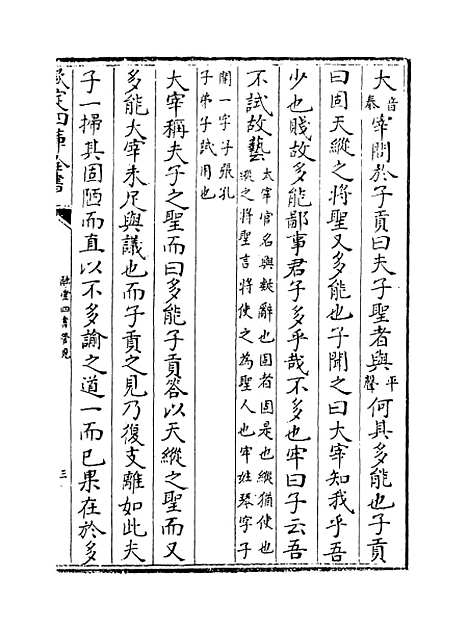 大音泰宰問於子貢曰夫子聖者與平聲何其多能也子貢
曰固天縱之將聖又多能也子聞之曰大宰知我乎吾
少也賤故多能鄙事君子多乎哉不多也牢曰子云吾
不試故藝太宰官名與疑辭也固者固是也縱猶使也
縱之將聖言將使之為聖人也牢姓琴字子
開一字子張孔
子弟子試用也
大宰稱夫子之聖而曰多能子貢答以天縱之聖而又
多能大宰未足與議也而子貢之見乃復支離如此夫
子一掃其固陋而直以不多諭之道一而已果在於多
欽定四庫全書
融堂四書管見
三